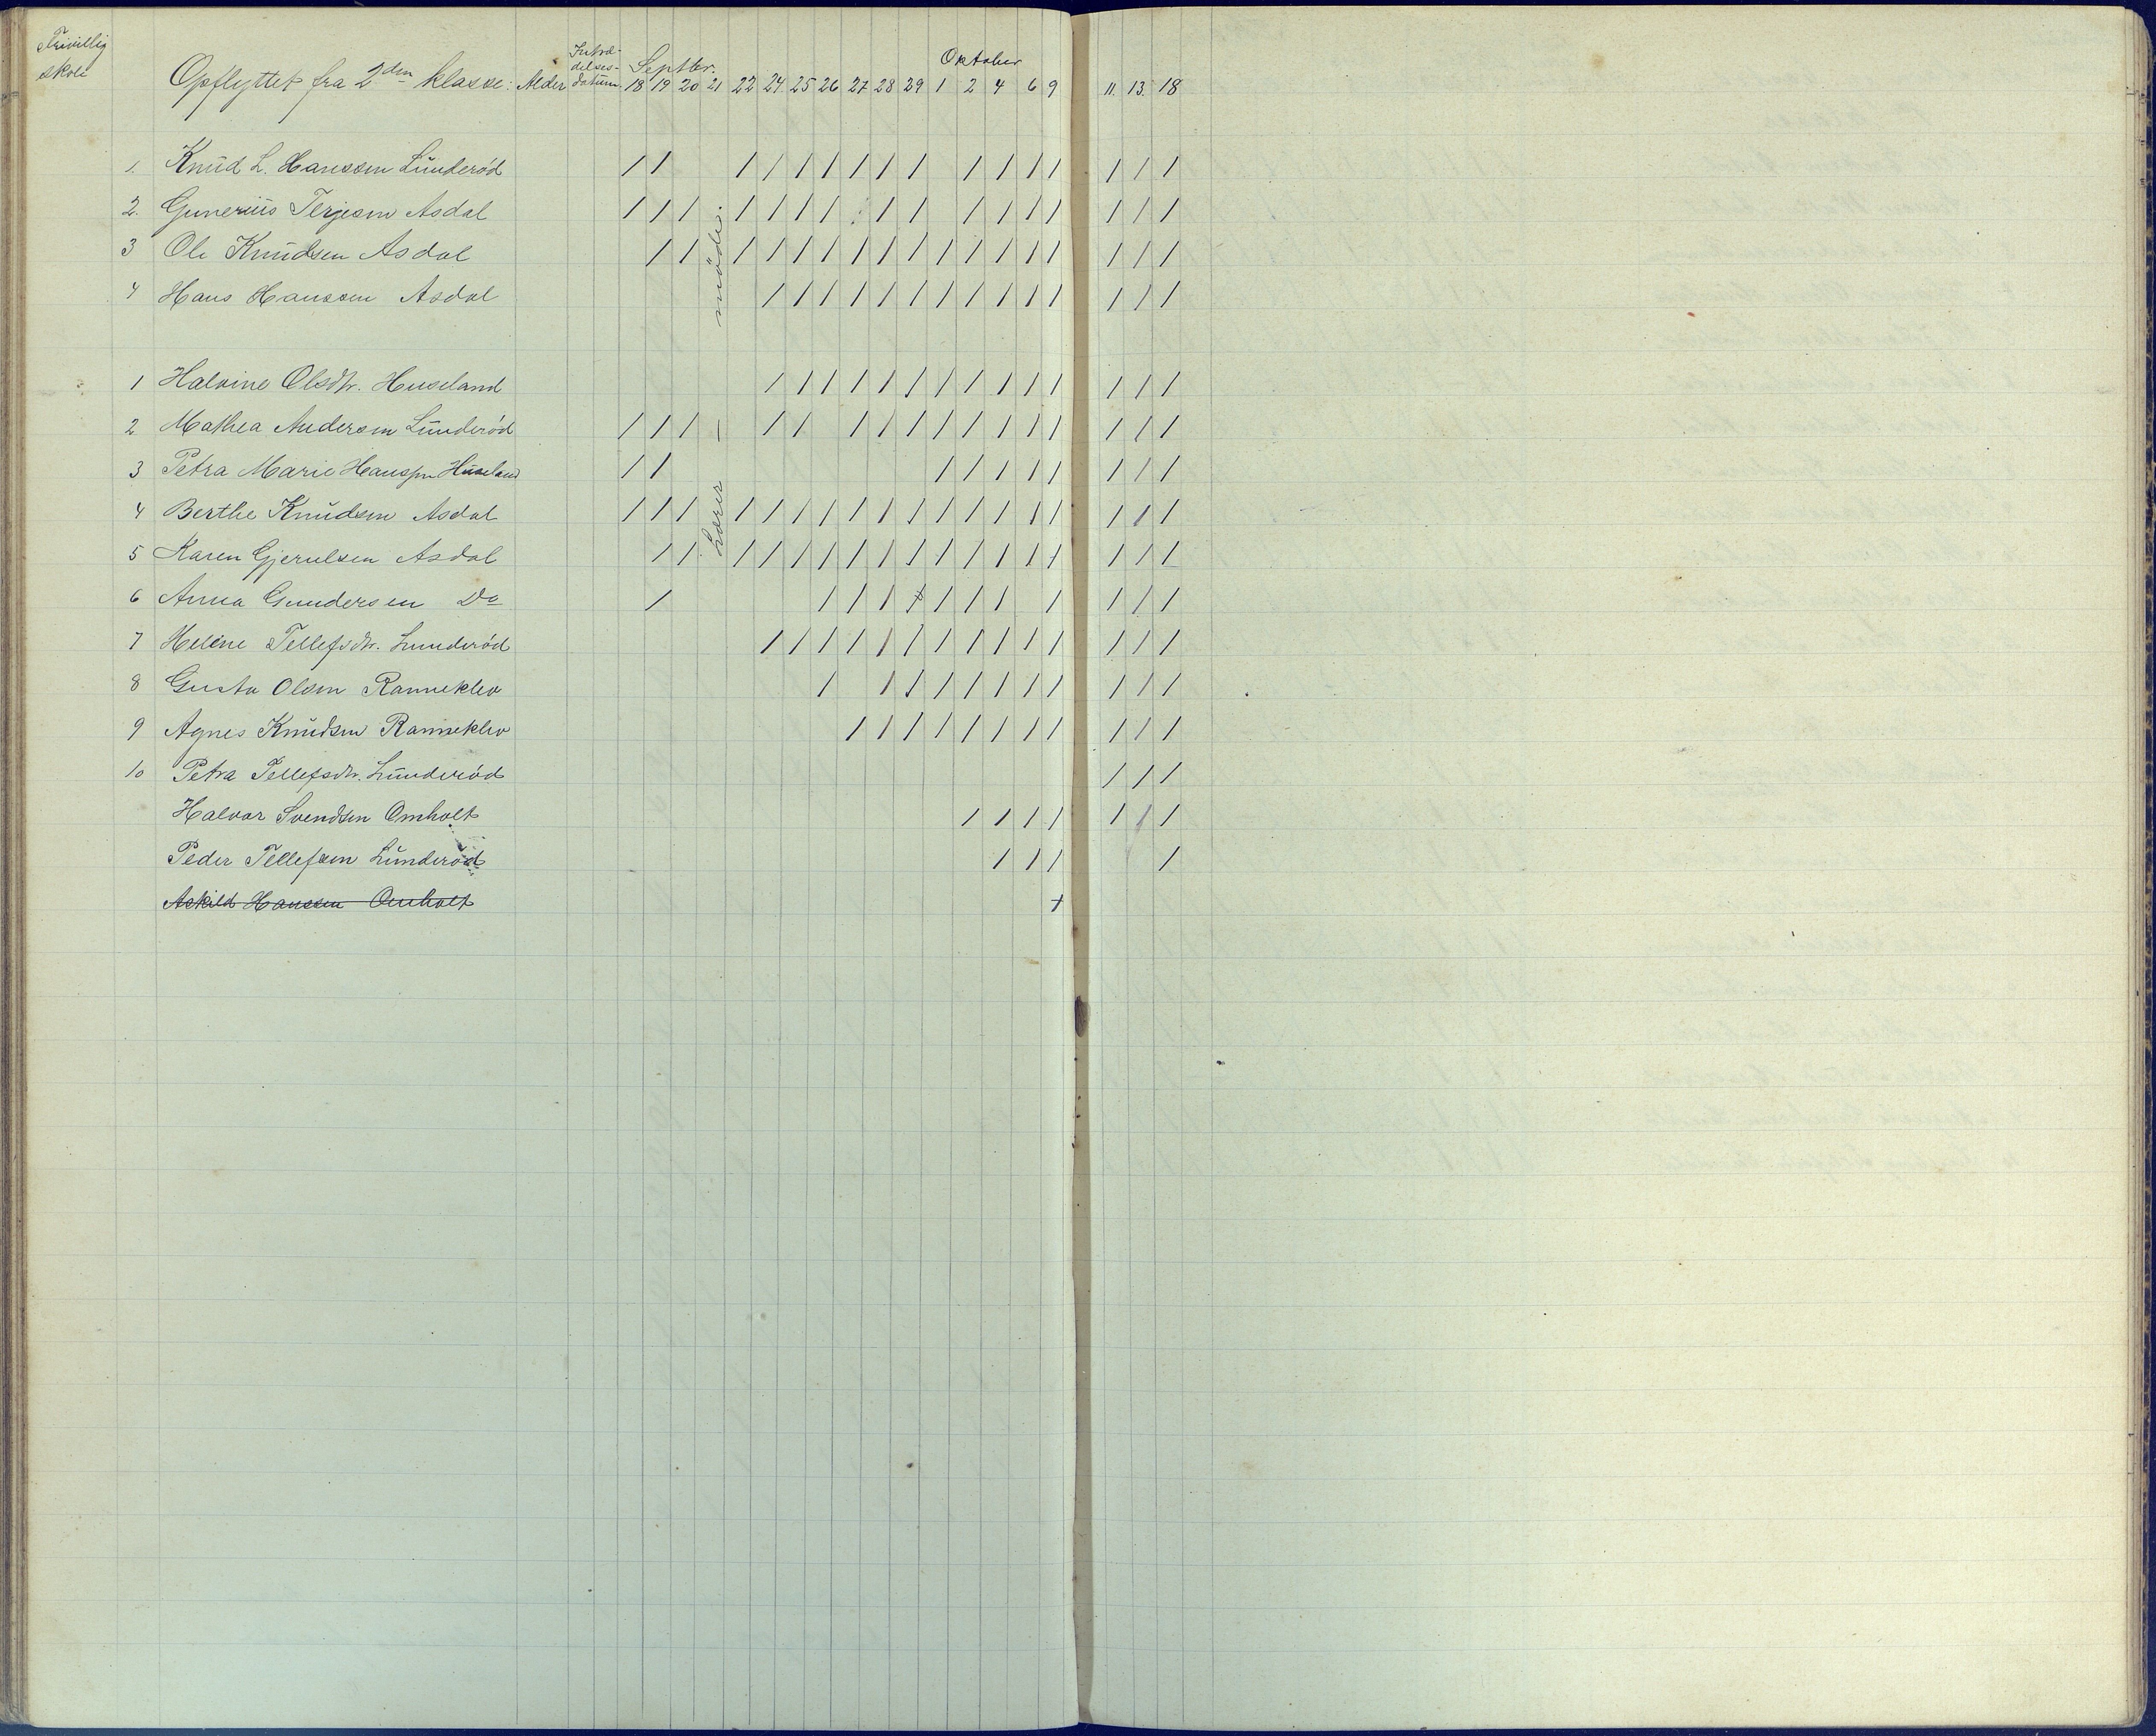 Frivillig
skole
Opflyttet fra 2den klasse: Alder Indtrædelses-datum. Septbr. 18 19 20 21 22 24 25 26 27 28 29 Oktober 1 2 4 6 9 11. 13. 18
1. Knud L. Hanssen Lunderød / / / / / / / / / / / / / / / /
2. Gunerius Terjesen Asdal / / / / / / / / / / / / / / / /
3 Ole Knudsen Asdal / / / / / / / / / / / / / / / / /
4 Hans Hanssen Asdal / / / / / / / / / / / / / /
Lærer — møde.
1 Halvine Olsdtr. Huseland / / / / / / / / / / / / / /
2 Mathea Andersen Lunderød / / / / / / / / / / / / / / / /
3 Petra Marie Hanssen Huseland / / / / / / / / / /
4 Berthe Knudsen Asdal / / / / / / / / / / / / / / / / / /
5 Karen Gjerulsen Asdal / / / / / / / / / / / / / / / / /
6 Anna Gundersen Do / / / / / / / / / / / /
7 Helene Tellefsdtr. Lunderød / / / / / / / / / / / / / /
8 Gusta Olsen Ranneklev / / / / / / / / / / /
9 Agnes Knudsen Ranneklev / / / / / / / / / / /
10 Petra Tellefsdtr. Lunderød / / /
Halvor Svendsen Omholt / / / / / / /
Peder Tellefsen Lunderød / / / /
Askild Hanssen Omholt +